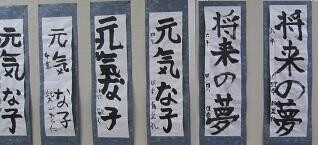 元気な子
元気な子
元気な子
元気な子
将来の夢
将来の夢